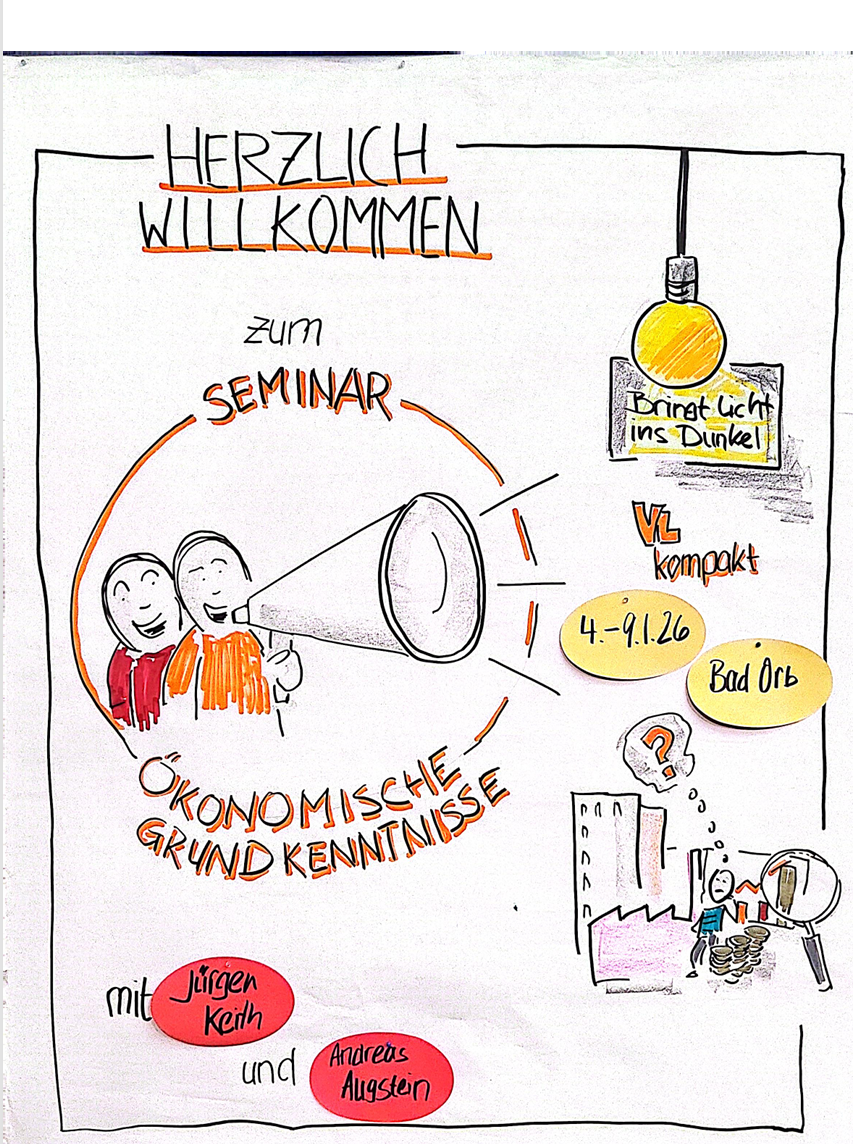 HERZLICH
WILLKOMMEN
zum
SEMINAR
Bringt Licht
ins Dunkel
VL
kompakt
4.-9.1.26
Bad Orb
?
ÖKONOMISCHE
GRUNDKENNTNISSE
mit Jürgen
Keith
und Andreas
Augstein